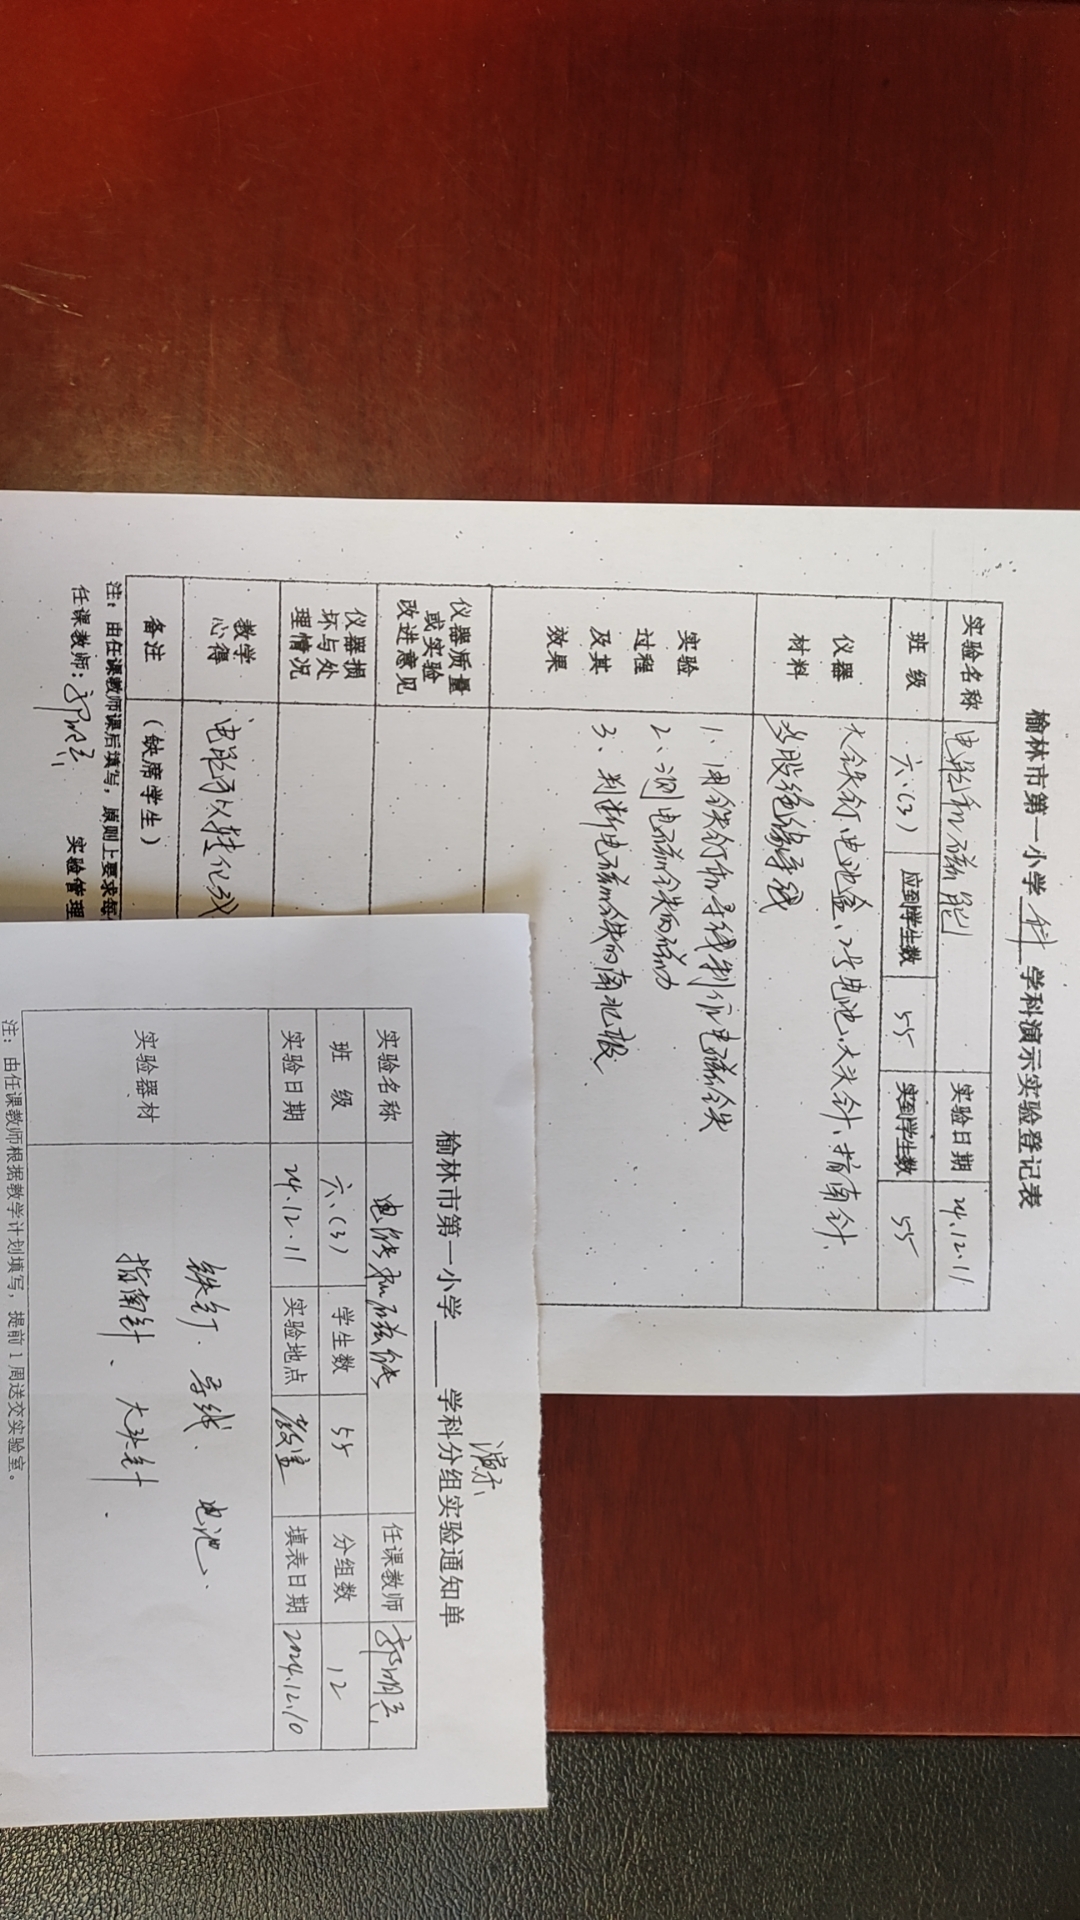 榆林市第一小学 科 学科演示实验登记表
实验名称 电能和磁能 实验日期 24.12.11
班 级 六、(3) 应到学生数 55 实到学生数 55
仪器材料 大铁钉、电池盒、2号电池、大头针、指南针、
多股绝缘导线
实验过程及其效果
1、用铁钉和导线制作电磁铁
2、测电磁铁的磁力
3、判断电磁铁的南北极
仪器质量或实验改进意见
仪器损坏与处理情况
教学心得 电能可以转化成
备注 (缺席学生)
注: 由任课教师课后填写, 原则上要求每
任课教师: 实验管理
演示
榆林市第一小学____学科分组实验通知单
实验名称 电能和磁能 任课教师
班 级 六、(3) 学生数 55 分组数 12
实验日期 24.12.11 实验地点 教室 填表日期 2024.12.10
实验器材
铁钉、导线、电池、
指南针、大头针.
注: 由任课教师根据教学计划填写, 提前1周送交实验室。